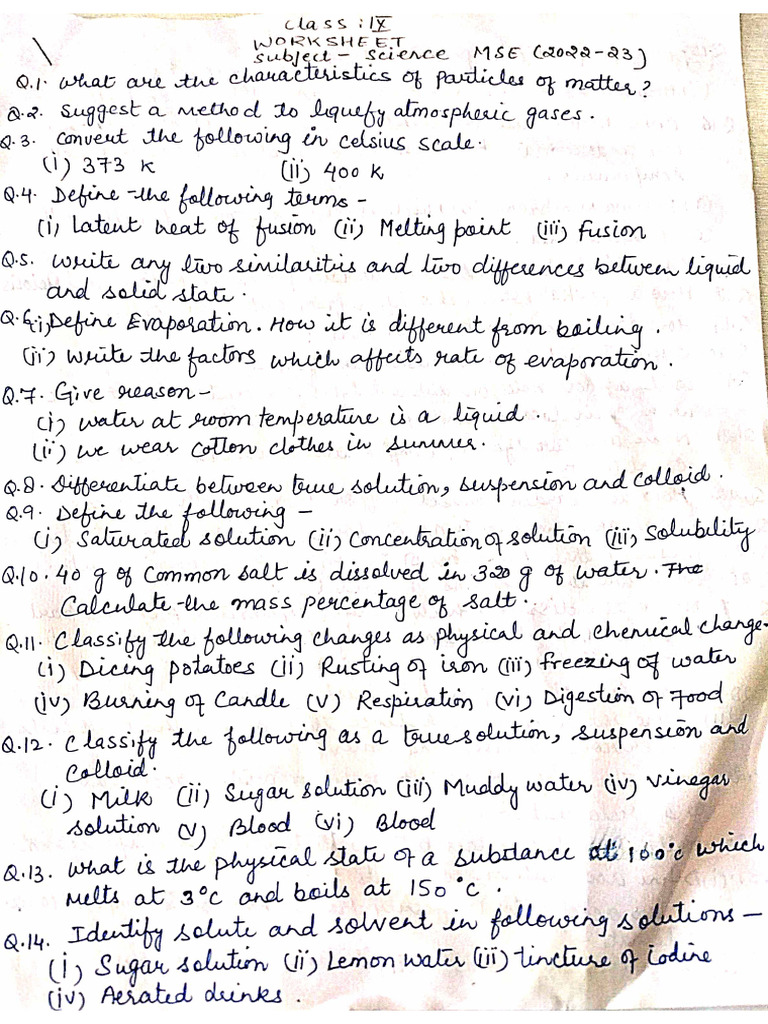 Class : IX
WORKSHEET
Subject - Science MSE (2022-23)
Q.1. What are the characteristics of Particles of matter?
Q.2. Suggest a method to liquefy atmospheric gases.
Q.3. Convert the following in celsius scale.
(i) 373 K (ii) 400 K
Q.4. Define the following terms -
(i) Latent heat of fusion (ii) Melting point (iii) Fusion
Q.5. Write any two similarities and two differences between liquid
and solid state.
Q.6. (i) Define Evaporation. How it is different from boiling.
(ii) Write the factors which affects rate of evaporation.
Q.7. Give reason -
(i) Water at room temperature is a liquid.
(ii) We wear cotton clothes in summer.
Q.8. Differentiate between true solution, suspension and colloid.
Q.9. Define the following -
(i) Saturated solution (ii) Concentration of solution (iii) Solubility
Q.10. 40 g of Common salt is dissolved in 320 g of water. The
Calculate the mass percentage of salt.
Q.11. Classify the following changes as physical and chemical change-
(i) Dicing potatoes (ii) Rusting of iron (iii) freezing of water
(iv) Burning of Candle (v) Respiration (vi) Digestion of Food
Q.12. Classify the following as a true solution, suspension and
Colloid.
(i) Milk (ii) Sugar solution (iii) Muddy water (iv) Vinegar
solution (v) Blood (vi) Blood
Q.13. What is the physical state of a substance at 160°c which
Melts at 3°c and boils at 150°c.
Q.14. Identify solute and solvent in following solutions -
(i) Sugar solution (ii) Lemon water (iii) tincture of iodine
(iv) Aerated drinks.